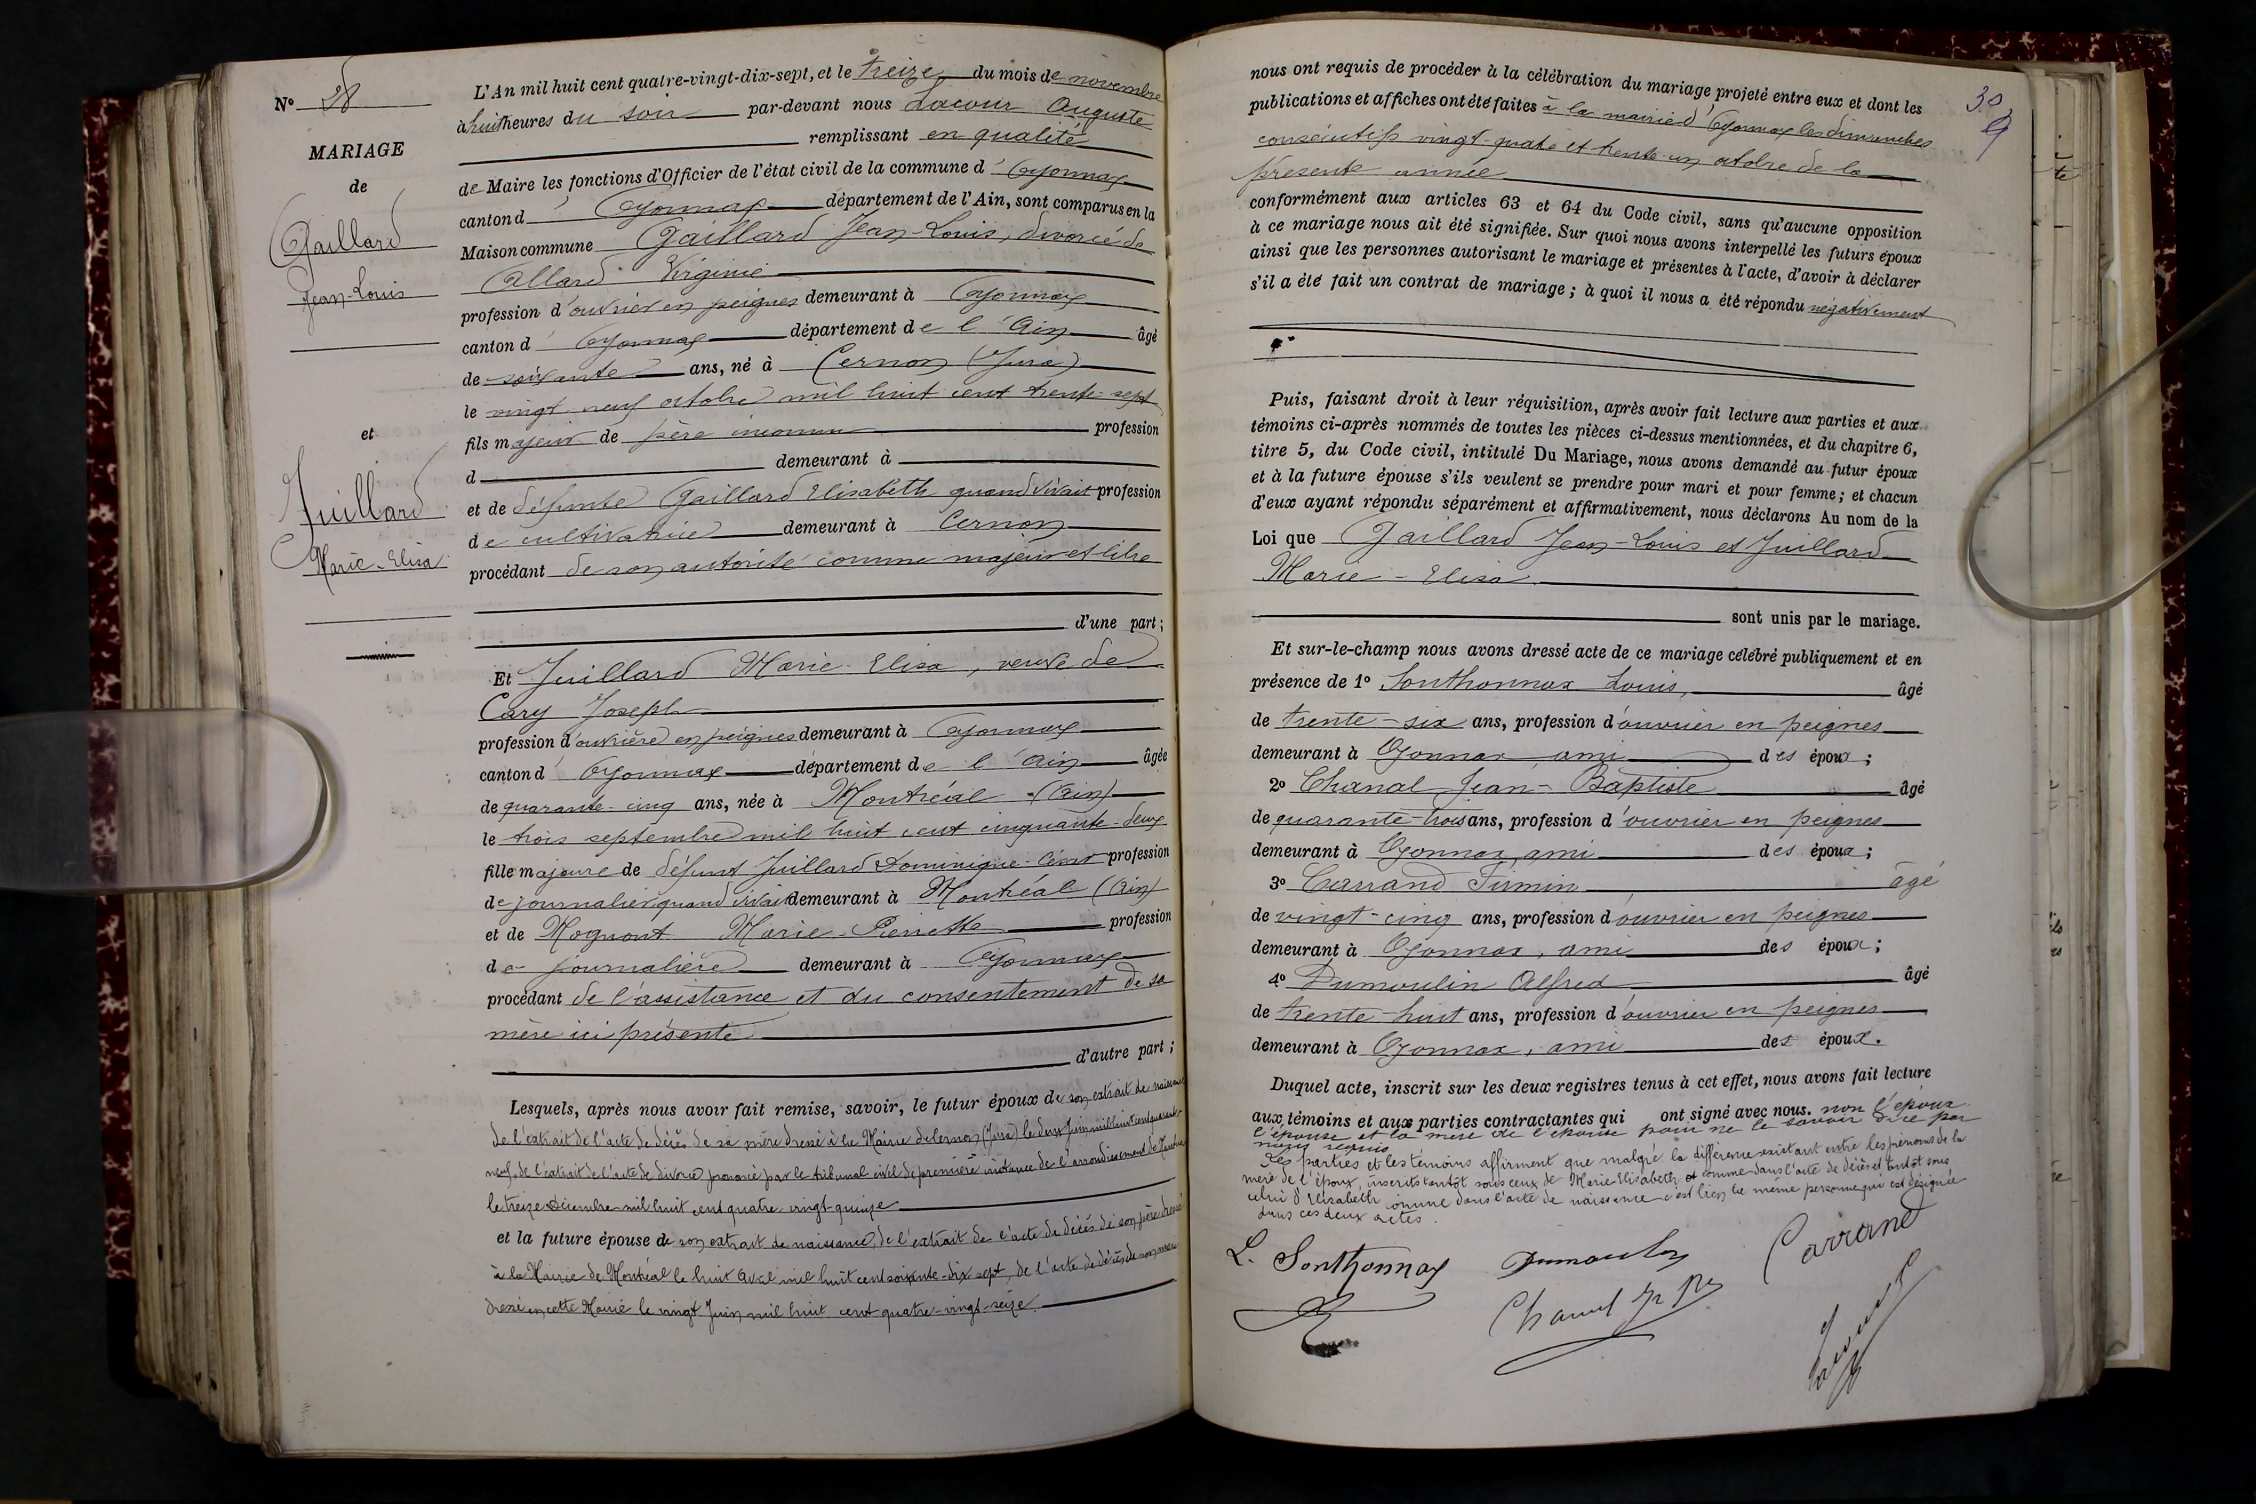 N° 28
MARIAGE
de
Gaillard
Jean-Louis
et
Juillard
Marie-Elisa
L'An mil huit cent quatre-vingt-dix-sept, et le treize du mois de novembre
à huit heures du soir par-devant nous Lacour Auguste
remplissant en qualité
de Maire les fonctions d'Officier de l'état civil de la commune d'Oyonnax
canton d'Oyonnax département de l'Ain, sont comparus en la
Maison commune Gaillard Jean-Louis, divorcé de
Allard Virginie
profession d'ouvrier en peignes demeurant à Oyonnax
canton d'Oyonnax département de l'Ain âgé
de soixante ans, né à Cernon (Jura)
le vingt-neuf octobre mil huit cent trente-sept
fils majeur de père inconnu profession
d demeurant à
et de défunte Gaillard Elisabeth quand vivait profession
de cultivatrice demeurant à Cernon
procédant de son autorité comme majeur et libre
d'une part;
Et Juillard Marie-Elisa, veuve de
Cary Joseph
profession d'ouvrière en peignes demeurant à Oyonnax
canton d'Oyonnax département de l'Ain âgée
de quarante-cinq ans, née à Montréal (Ain)
le trois septembre mil huit cent cinquante-deux
fille majeure de défunt Juillard Dominique profession
de journalier quand vivait demeurant à Montréal (Ain)
et de Marie-Pierrette profession
de journalière demeurant à Oyonnax
procédant de l'assistance et du consentement de sa
mère ici présente
d'autre part;
Lesquels, après nous avoir fait remise, savoir, le futur époux de son extrait de naissance
de l'extrait de l'acte de décès de sa mère dressé à la Mairie de Cernon (Jura) le deux Juin mil huit cent quarante-
neuf, de l'extrait de l'acte de divorce prononcé par le tribunal civil de première instance de l'arrondissement de Nantua
le treize Décembre mil huit cent quatre vingt-quinze
et la future épouse de son extrait de naissance, de l'extrait de l'acte de décès de son père dressé
à la Mairie de Montréal le huit Avril mil huit cent soixante-dix sept, de l'acte de décès de son mari
dressé en cette Mairie le vingt Juin mil huit cent quatre-vingt-seize
30
nous ont requis de procéder à la célébration du mariage projeté entre eux et dont les
publications et affiches ont été faites à la mairie d'Oyonnax les dimanches
consécutifs vingt-quatre et trente-un octobre de la
présente année
conformément aux articles 63 et 64 du Code civil, sans qu'aucune opposition
à ce mariage nous ait été signifiée. Sur quoi nous avons interpellé les futurs époux
ainsi que les personnes autorisant le mariage et présentes à l'acte, d'avoir à déclarer
s'il a été fait un contrat de mariage; à quoi il nous a été répondu négativement
Puis, faisant droit à leur réquisition, après avoir fait lecture aux parties et aux
témoins ci-après nommés de toutes les pièces ci-dessus mentionnées, et du chapitre 6,
titre 5, du Code civil, intitulé Du Mariage, nous avons demandé au futur époux
et à la future épouse s'ils veulent se prendre pour mari et pour femme; et chacun
d'eux ayant répondu séparément et affirmativement, nous déclarons Au nom de la
Loi que Gaillard Jean-Louis et Juillard
Marie-Elisa
sont unis par le mariage.
Et sur-le-champ nous avons dressé acte de ce mariage célébré publiquement et en
présence de 1° Sonthonnax Louis, âgé
de trente-six ans, profession d'ouvrier en peignes
demeurant à Oyonnax, ami des époux;
2° Chanal Jean-Baptiste âgé
de quarante-trois ans, profession d'ouvrier en peignes
demeurant à Oyonnax, ami des époux;
3° Carrand Firmin âgé
de vingt-cinq ans, profession d'ouvrier en peignes
demeurant à Oyonnax, ami des époux;
4° Dumoulin Alfred âgé
de trente-huit ans, profession d'ouvrier en peignes
demeurant à Oyonnax, ami des époux.
Duquel acte, inscrit sur les deux registres tenus à cet effet, nous avons fait lecture
aux témoins et aux parties contractantes qui ont signé avec nous. non l'époux
l'épouse et la mère de l'épouse pour ne le savoir dire par
nous requis
Les parties et les témoins affirment que malgré la différence existant entre les prénoms de la
mère de l'époux, inscrits tantôt sous ceux de Marie Elisabeth comme dans l'acte de décès et tantôt sous
celui d'Elisabeth comme dans l'acte de naissance c'est bien la même personne qui est désignée
dans ces deux actes.
L. Sonthonnax Dumoulin Carrand
Chanal Jn Bte